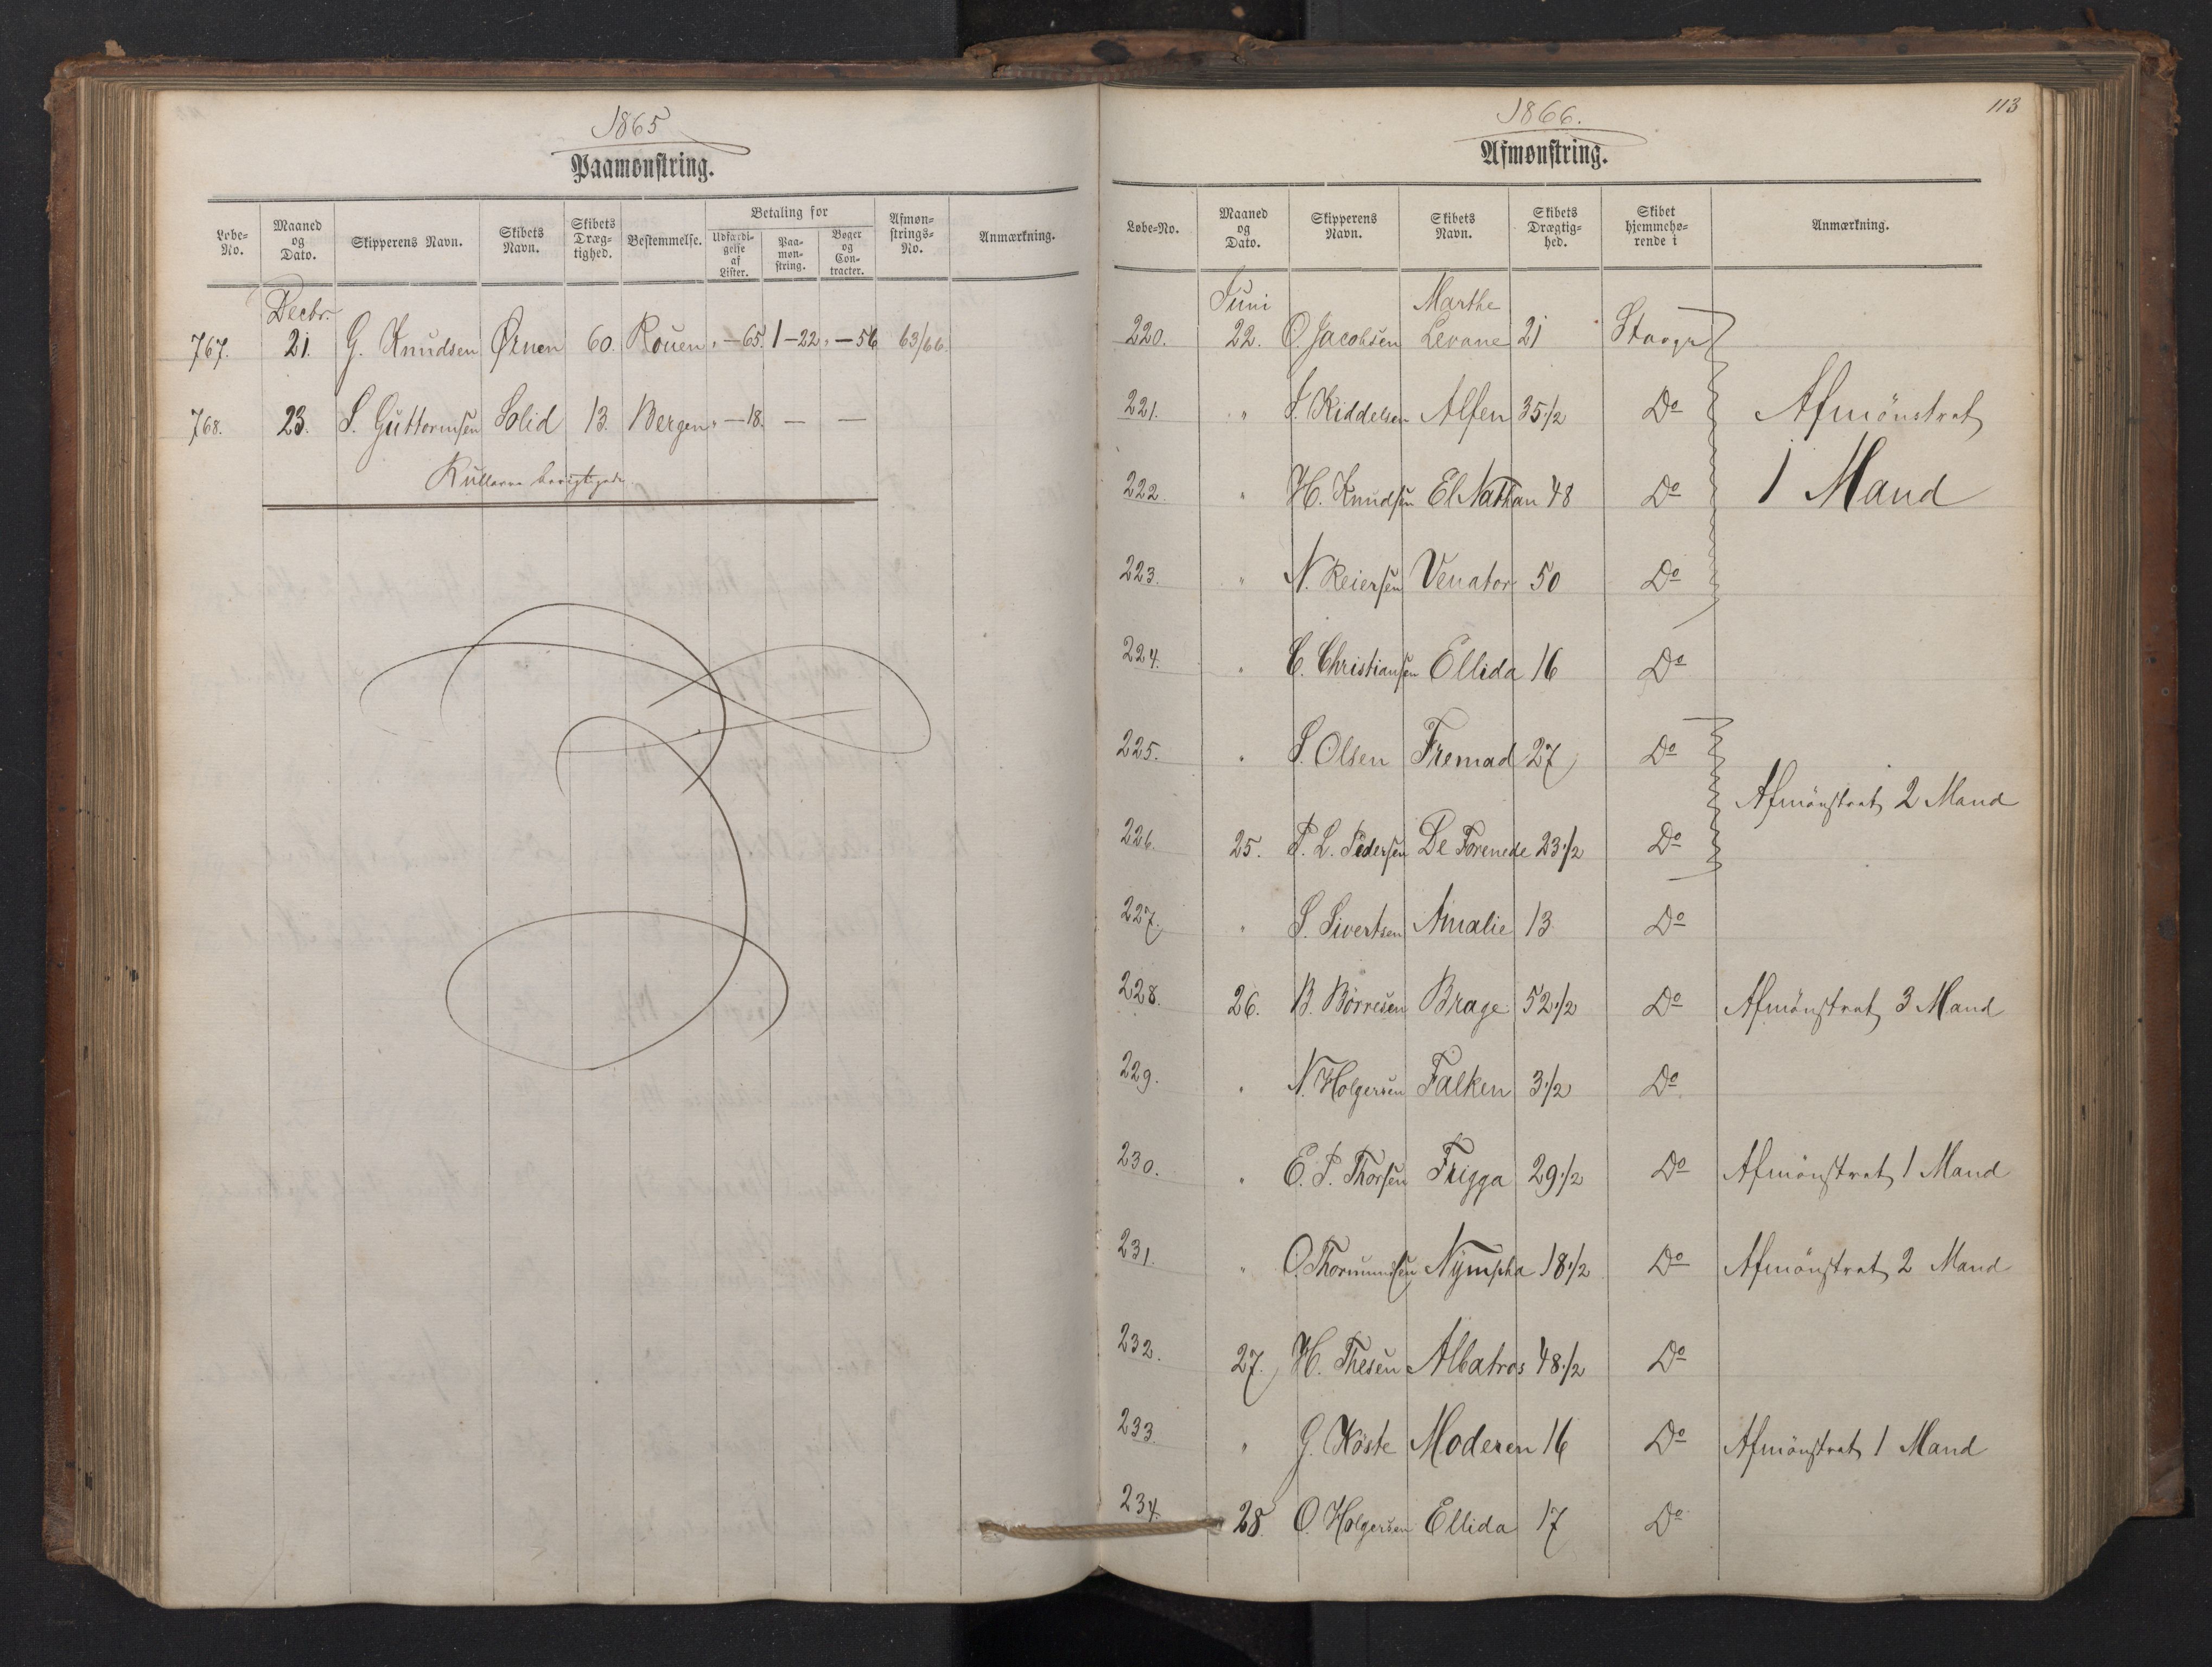 1865
Paamønstring.
Løbe-No. | Maaned og Dato. | Skipperens Navn. | Skibets Navn. | Skibets Dræg-tighed. | Bestemmelse. | Betaling for | Udfærdi-gelse af Lister. | Paa-møn-string. | Bøger og Con-tracter. | Afmøn-strings-No. | Anmærkning.
Decbr.
767. 21. G. Knudsen Ørnen 60. Rouen " – 65. 1 – 22 " – 56 63/66.
768. 23. S. Guttormsen Solid 13. Bergen " – 18. — —
Rullerne berigtigede.
113
1866.
Afmønstring.
Løbe-No. | Maaned og Dato. | Skipperens Navn. | Skibets Navn. | Skibets Drægtig-hed. | Skibet hjemmehø-rende i | Anmærkning.
Juni Marthe
220. 22. O. Jacobsen Levane 21 Stavgr
221. " Kiddelsen Alfen 35 1/2 Do Afmönstret
222. " H. Knudsen El Nathan 48 Do 1 Mand
223. " N. Reiersen Venator 50 Do
224. " C. Christiansen Ellida 16 Do
225. " S. Olsen Fremad 27 Do
Afmönstret 2 Mand
226. 25. P. L. Pedersen De Forenede 23 1/2 Do
227. " S. Sivertsen Amalie 13 Do
228. 26. B. Börresen Brage 52 1/2 Do Afmönstret 3 Mand
229. " N. Holgersen Falken 3 1/2 Do.
230. " E. P. Thorsen Frigga 29 1/2 Do Afmönstret 1 Mand
231. " O. Thormundsen Nympha 18 1/2 Do Afmönstret 2 Mand
232. 27. H. Thesen Albatros 48 1/2 Do
233. " G. Höste Moderen 16 Do Afmönstret 1 Mand
234. 28. O. Holgersen Ellida 17 Do